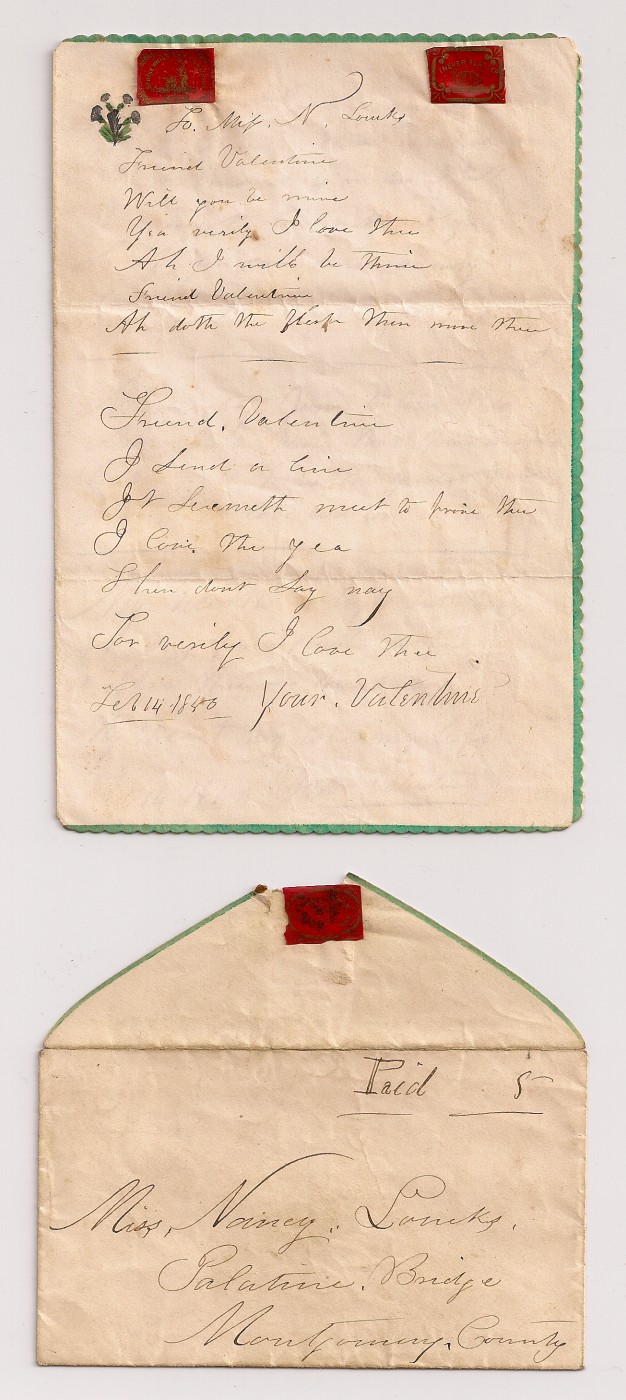 To. Miss. N. Loucks
Friend Valentine
Will you be mine
Yea verily I love thee
Ah I will be thine
Friend Valentine
Ah doth the flesh then move thee
Friend, Valentine
I send a line
It seemeth meet to prove thee
I love. the yea
Then dont say nay
For verily I love thee
Feb 14 1840 Your. Valentine
Paid 5
Miss, Nancy. Loucks.
Palatine. Bridge
Montgomery. County